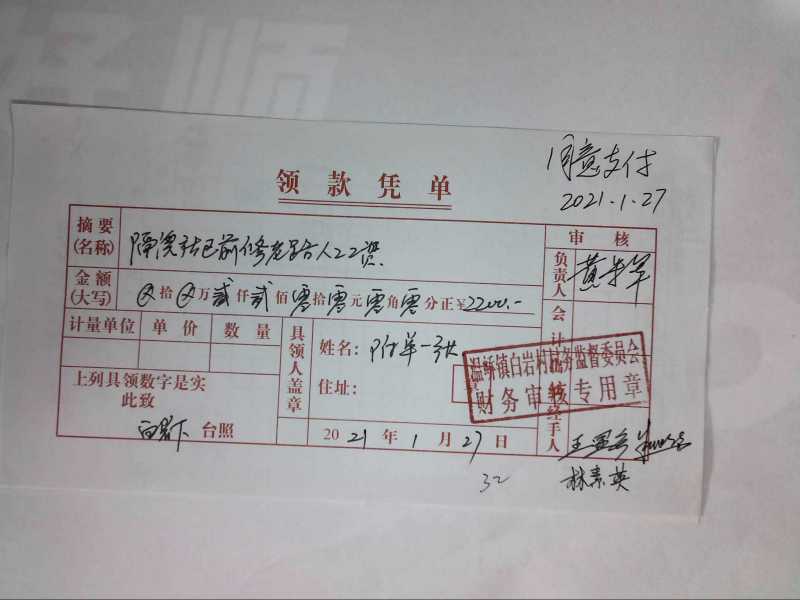 同意支付
2021.1.27
领款凭单
摘要(名称)
审核
金额(大写) ⊗拾⊗万贰仟贰佰零拾零元零角零分正¥2200.-
负责人
计量单位 单价 数量
具领人盖章
姓名:附单一张
住址:
会计
上列具领数字是实
此致
台照
2021年1月27日
经手人
温峤镇白岩村财务监督委员会
财务审核专用章
林素英
32